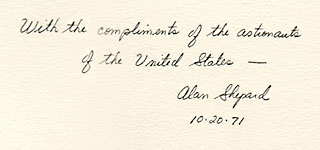 With the compliments of the astronauts
of the United States —
Alan Shepard
10-20-71